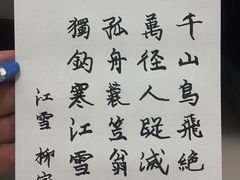 千山鳥飛絶
萬径人踪滅
孤舟蓑笠翁
獨釣寒江雪
江雪 柳宗